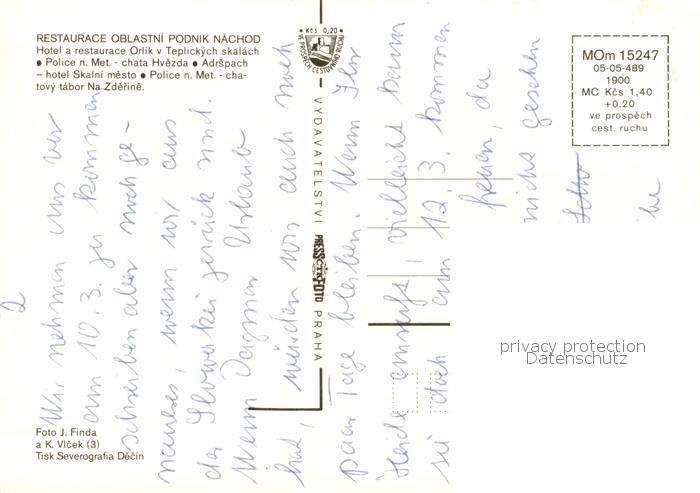 RESTAURACE OBLASTNÍ PODNIK NÁCHOD
Hotel a restaurace Orlík v Teplických skalách
● Police n. Met. - chata Hvězda ● Adršpach
– hotel Skalní město ● Police n. Met. - cha-
tový tábor Na Zděřině.
Kčs 0,20
VE PROSPĚCH CESTOVNÍHO RUCHU
VYDAVATELSTVÍ PRESSFOTO PRAHA
MOm 15247
05-05-489
1900
MC Kčs 1,40
+0,20
ve prospěch
cest. ruchu
2
Wir nehmen uns vor
am 10.3. zu kommen
schreiben aber noch ge-
naueres, wenn wir aus
der Slowakei zurück sind.
Wenn Dagmar Urlaub
hat, würden wir auch noch
paar Tage bleiben. Wenn Ihr
Heide anruft, vielleicht kann
sie doch am 12.3. kommen
freuen, da
nicht gesehen
Foto J. Finda
a K. Vlček (3)
Tisk Severografia Děčín
privacy protection
Datenschutz